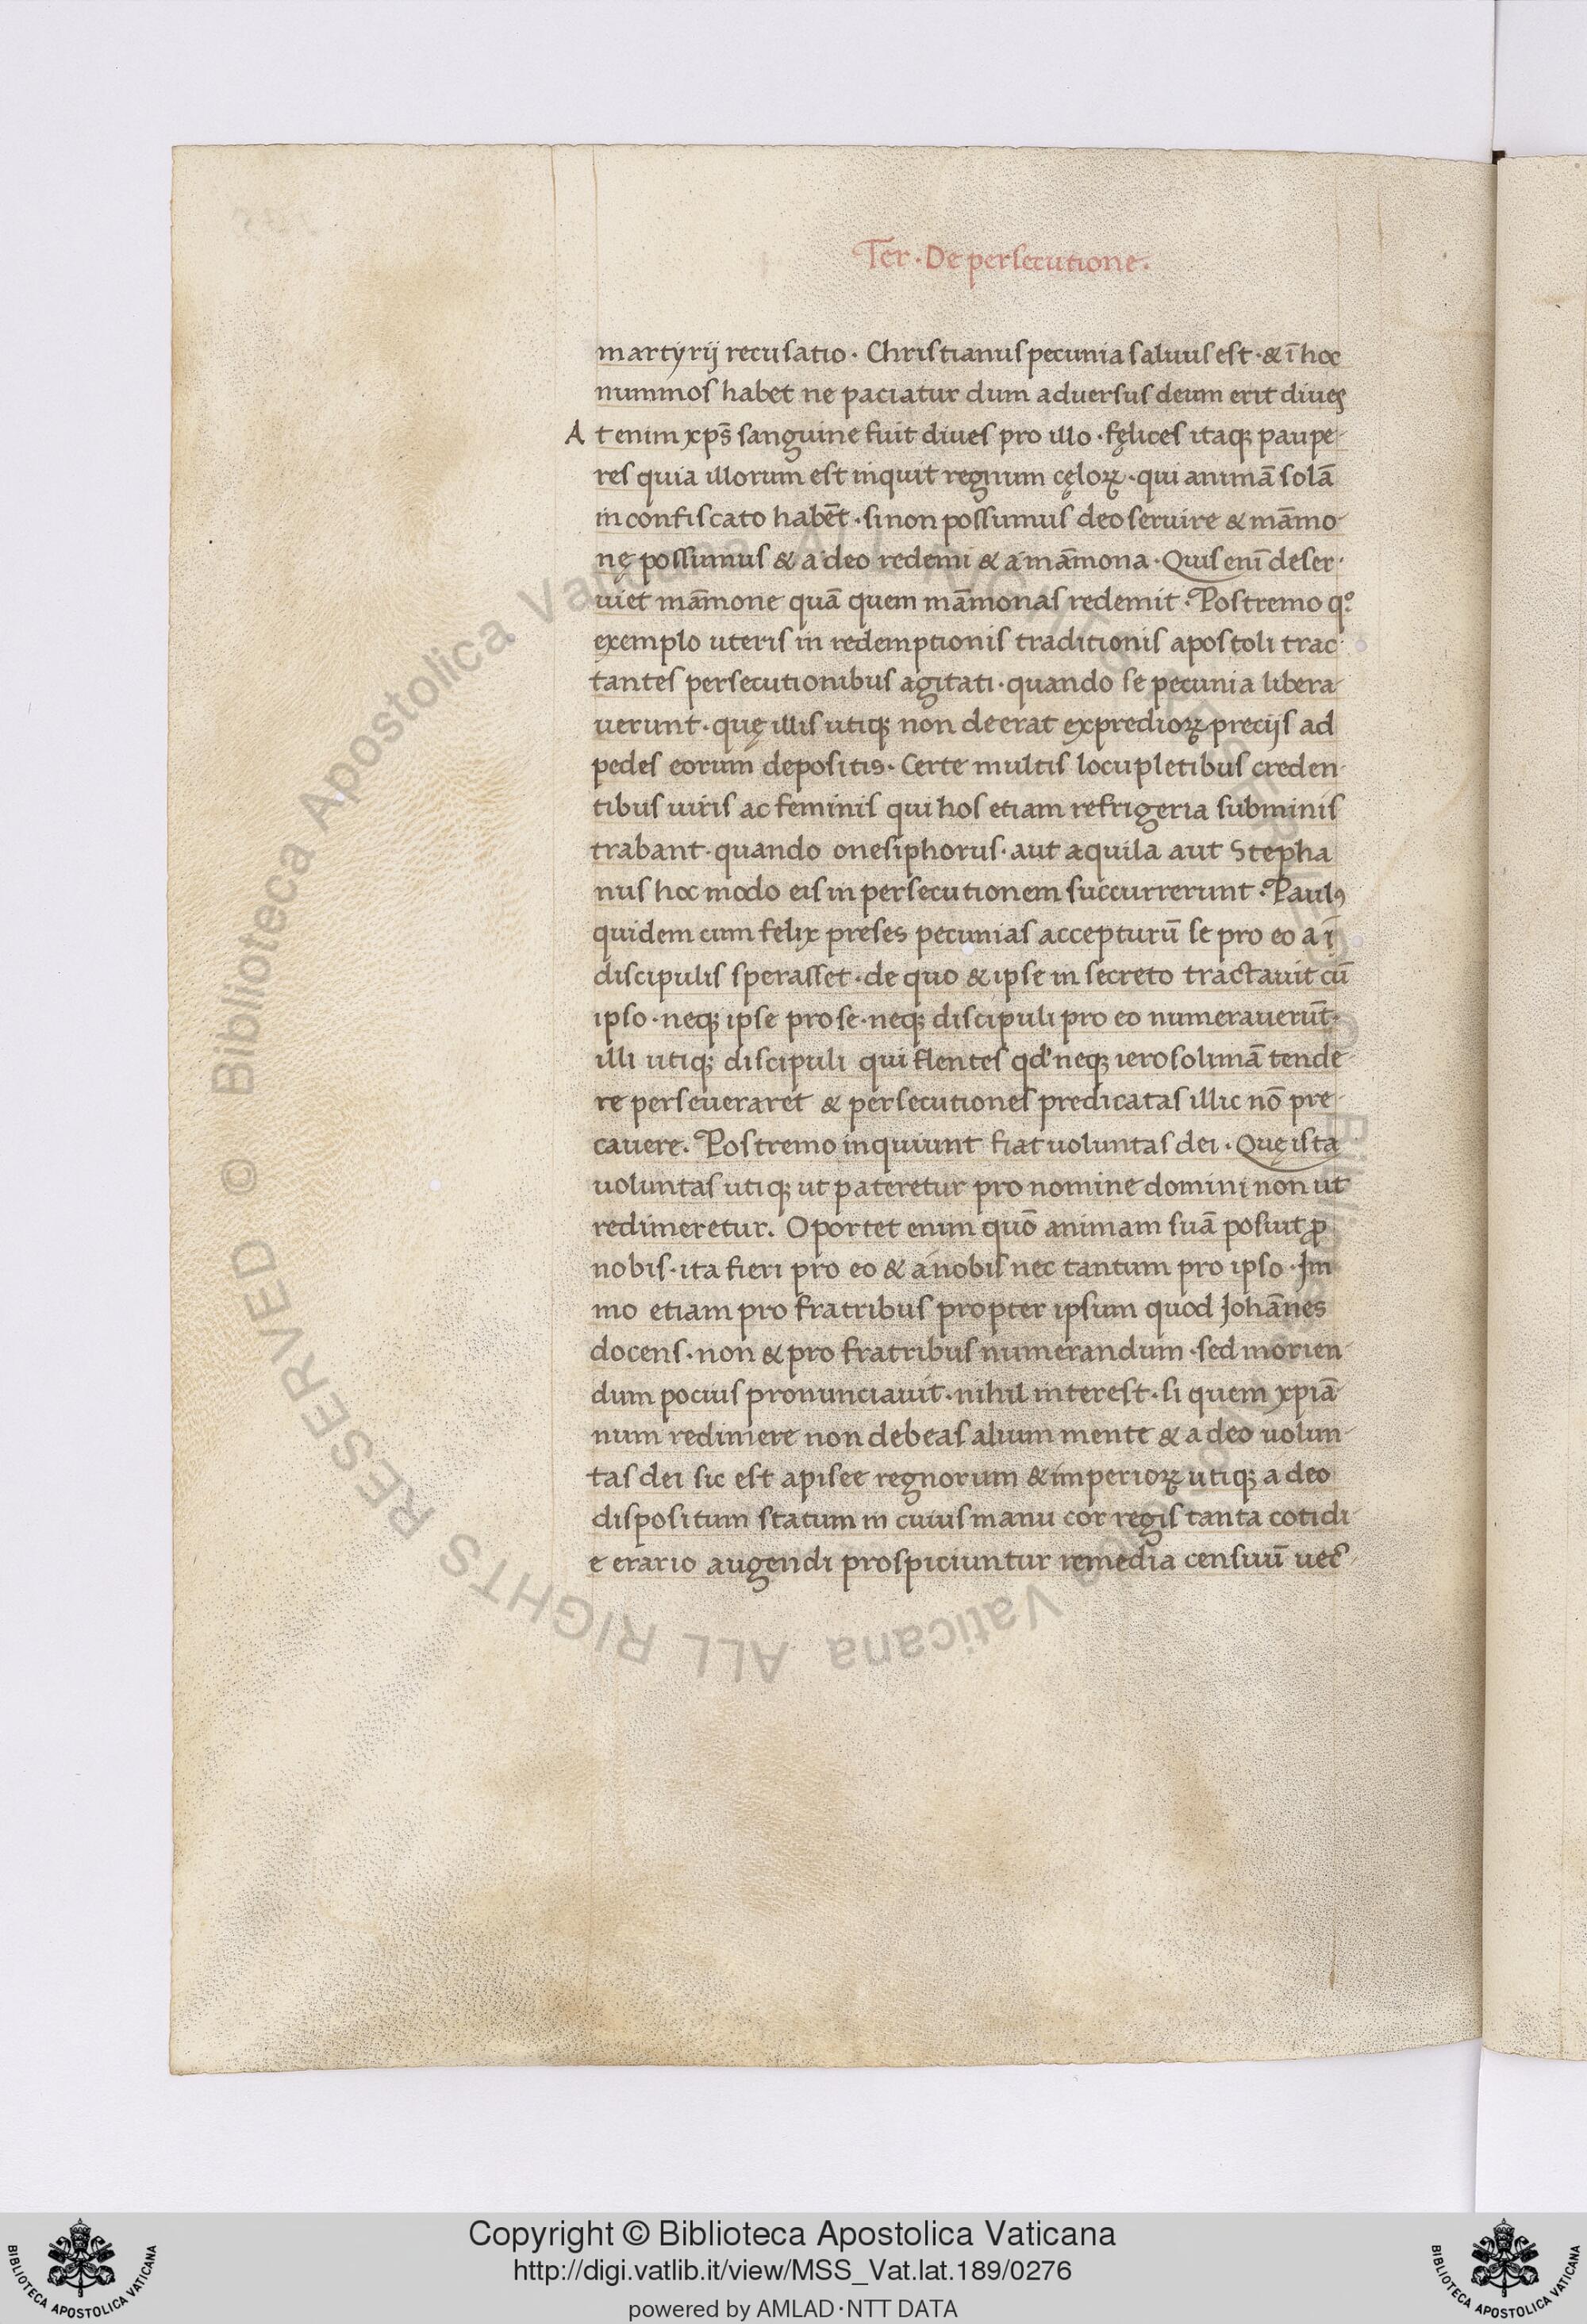 Ter · De persecutione ·
martyrij recusatio · Christianus pecunia saluus est · & ī hoc
nummos habet ne paciatur dum aduersus deum erit diues
At enim xp̄s sanguine fuit diues pro illo · fęlices itaqꝫ paupe-
res quia illorum est inquit regnum cęloꝝ · qui animā solā
in confiscato habēt · si non possumus deo seruire & māmo-
nę possumus & a deo redemi & a māmona · Quis enī deser-
uiet māmone quā quem māmonas redemit · Postremo qº
exemplo uteris in redemptionis traditionis apostoli trac-
tantes persecutionibus agitati · quando se pecunia libera-
uerunt · quę illis utiqꝫ non deerat ex predioꝝ precijs ad
pedes eorum depositis · Certe multis locupletibus creden-
tibus uiris ac feminis qui hos etiam refrigeria subminis
trabant · quando onesiphorus · aut aquila aut Stepha
nus hoc modo eis in persecutionem succurrerunt · Paulꝰ
quidem cum felix preses pecunias accepturū se pro eo a ī
discipulis sperasset · de quo & ipse in secreto tractauit cū
ipso · neqꝫ ipse pro se · neqꝫ discipuli pro eo numerauerūt ·
illi utiqꝫ discipuli qui flentes qd' neqꝫ ierosolimā tende-
re perseueraret & persecutiones predicatas illic nō pre-
cauere. Postremo inquiunt fiat uoluntas dei · Quę ista
uoluntas utiqꝫ ut pateretur pro nomine domini non ut
redimeretur. Oportet enim quō animam suā posuit ꝓ
nobis · ita fieri pro eo & a nobis nec tantum pro ipso · Im
mo etiam pro fratribus propter ipsum quod Johānes
docens · non & pro fratribus numerandum · sed morien-
dum pocius pronunciauit · nihil interest · si quem xpiā-
num redimere non debeas alium mente & a deo uolun-
tas dei sic est apisee regnorum & imperioꝝ utiqꝫ a deo
dispositum statum in cuius manu cor regis tanta cotidi-
e erario augendi prospiciuntur remedia censuū uec̄-
Biblioteca Apostolica Vaticana ALL RIGHTS RESERVED ©
Biblioteca Apostolica Vaticana ALL RIGHTS RESERVED ©
Copyright © Biblioteca Apostolica Vaticana
http://digi.vatlib.it/view/MSS_Vat.lat.189/0276
powered by AMLAD · NTT DATA
BIBLIOTECA APOSTOLICA VATICANA
BIBLIOTECA APOSTOLICA VATICANA